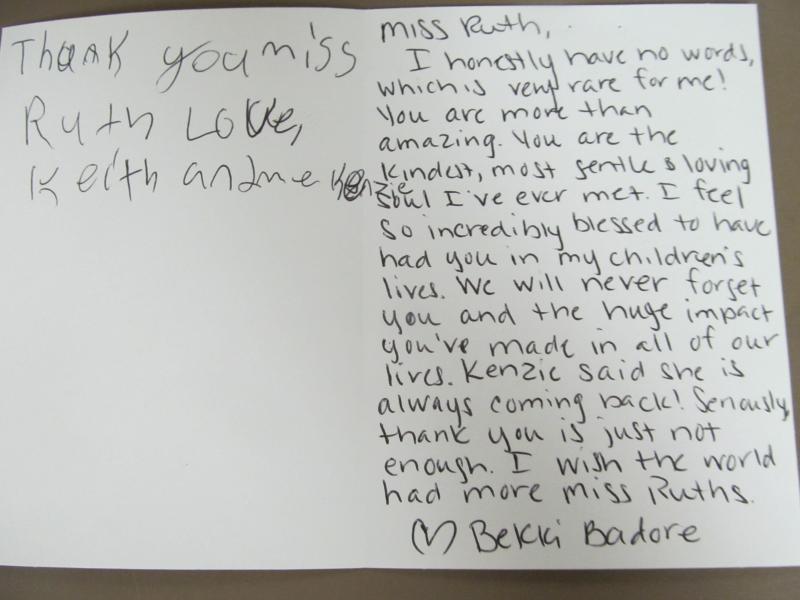 Thank you miss
Ruth Love,
Keith and me Kenzie
miss Ruth,
I honestly have no words,
which is very rare for me!
You are more than
amazing. You are the
kindest, most gentle & loving
soul I've ever met. I feel
so incredibly blessed to have
had you in my children's
lives. We will never forget
you and the huge impact
you've made in all of our
lives. Kenzie said she is
always coming back! Seriously,
thank you is just not
enough. I wish the world
had more miss Ruths.
♡ Bekki Badore